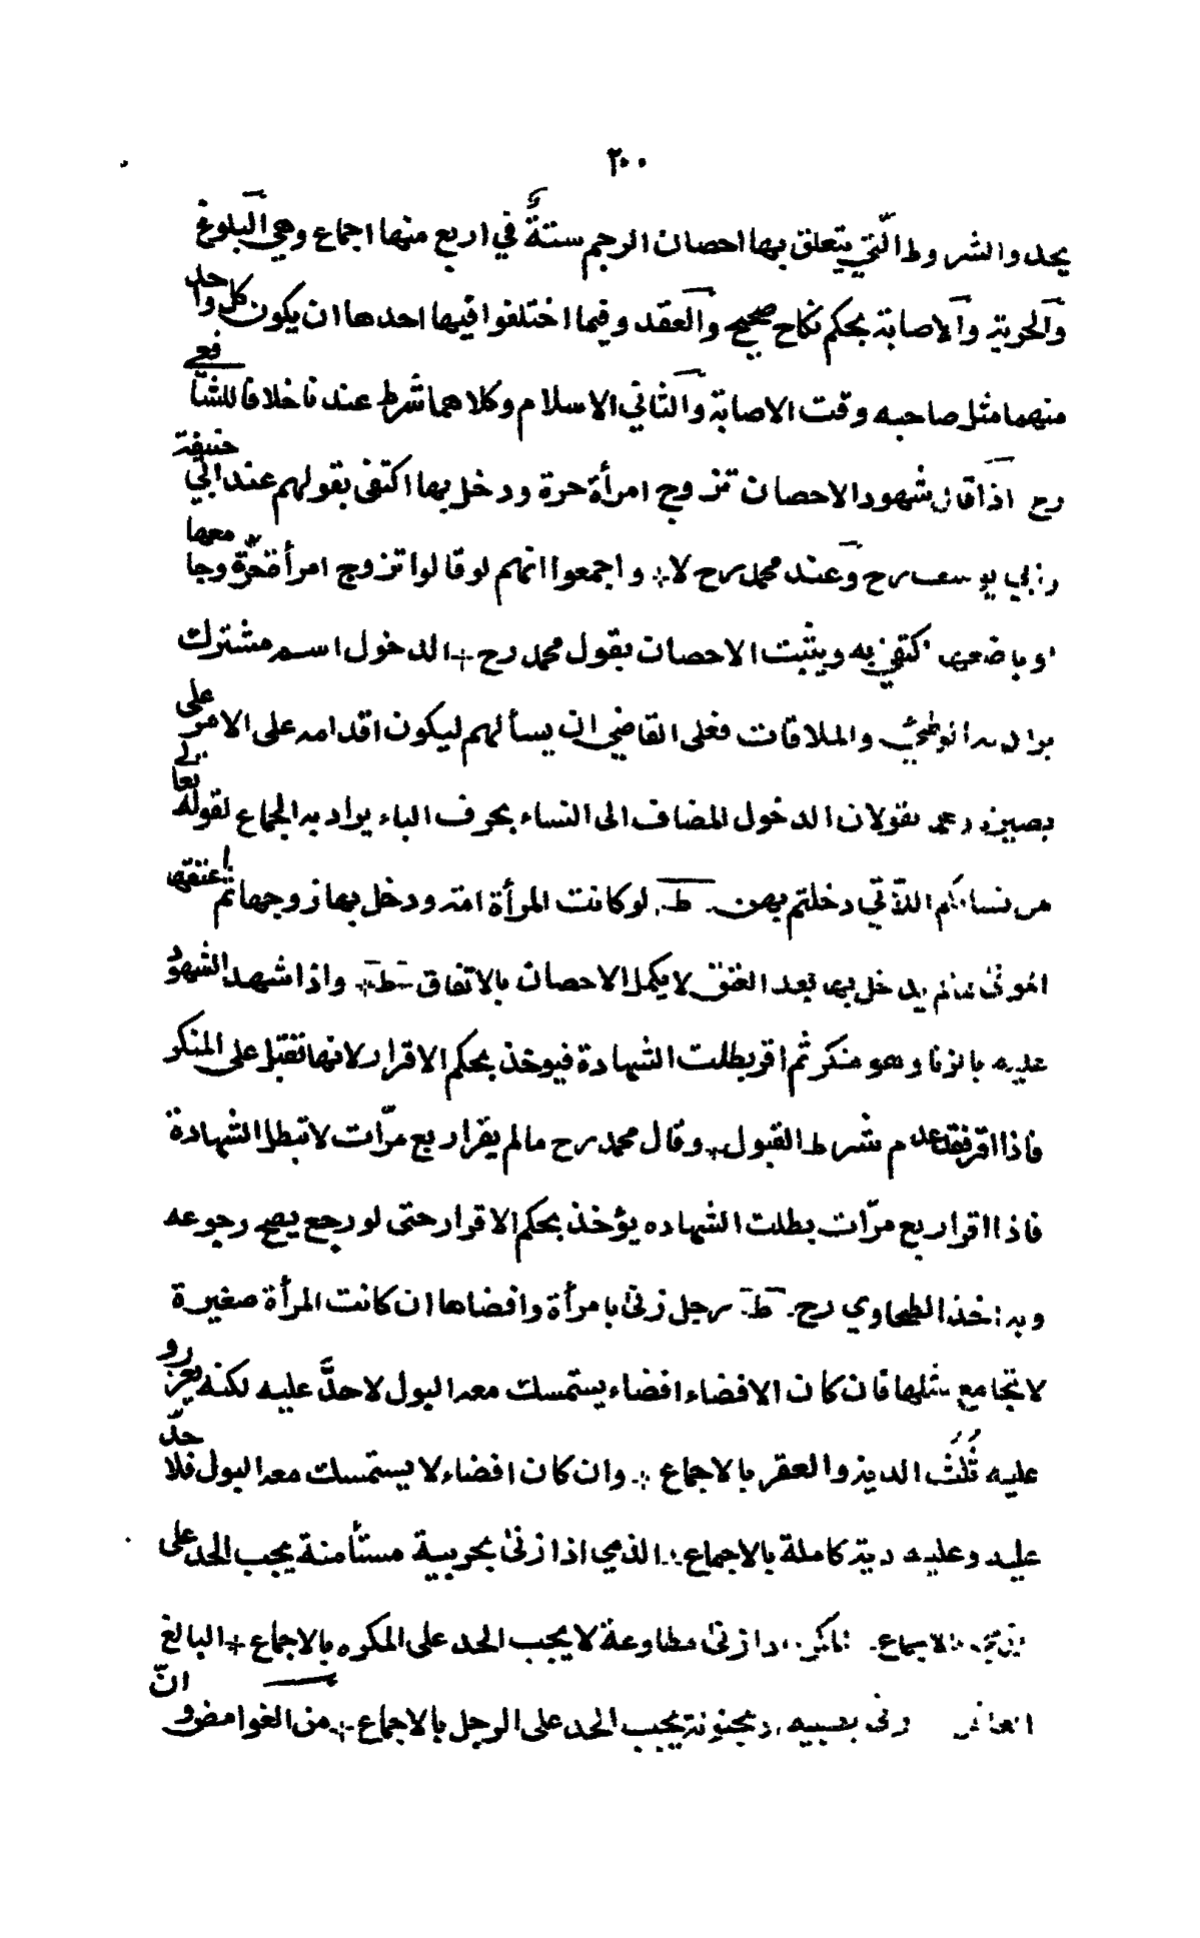 ٢٠٠
يحد والشروط التي يتعلق بها احصان الرجم ستة في اربع منها اجماع وهي البلوغ
والحرية والاصابة بحكم نكاح صحيح والعقد وفيما اختلفوا فيها احدها ان يكون كل واحد
منهما مثل صاحبه وقت الاصابة والثاني الاسلام وكلاهما شرط عندنا خلافا للشافعي
رح اذا قال شهود الاحصان تزوج امرأة حرة ودخل بها اكتفى بقولهم عند ابي حنيفة
وابي يوسف رح وعند محمد رح لا واجمعوا انهم لو قالوا تزوج امرأة حرّة وجامعها
او باضعها اكتفي به ويثبت الاحصان بقول محمد رح الدخول اسم مشترك
والملاقات فعلى القاضي ان يسألهم ليكون اقدامه على الامر على
بصيرة نقول ان الدخول المضاف الى النساء بحرف الباء يراد به الجماع لقوله تعالى
من نسائكم اللاتي دخلتم بهن ط لو كانت المرأة امة ودخل بها زوجها ثم اعتقها
المولى فما لم يدخل بها بعد العتق لا يكمل الاحصان بالاتفاق ط واذا شهد الشهود
عليه بالزنا وهو منكر ثم اقر بطلت الشهادة فيوخذ بحكم الاقرار لانها تقبل على المنكر
فاذا اقر فقد عدم شرط القبول وقال محمد رح ما لم يقر اربع مرّات لا تبطل الشهادة
فاذا اقر اربع مرّات بطلت الشهاده يؤخذ بحكم الاقرار حتى لو رجع يصح رجوعه
وبه اخذ الطحاوي رح ط رجل زنى بامرأة وافضاها ان كانت المرأة صغيرة
لا تجامع مثلها فان كان الافضاء افضاء يستمسك معه البول لا حدَّ عليه لكنه يعزر و
عليه ثُلُث الدية والعقر بالاجماع وان كان افضاء لا يستمسك معه البول فلا حدّ
عليه وعليه دية كاملة بالاجماع الذمي اذا زنى بحربية مستأمنة يجب الحد على
زنى مطاوعة لا يجب الحد على المكره بالاجماع البالغ
العاقل زنى بصبية او مجنونة يجب الحد على الرجل بالاجماع من الغوامض و انّ